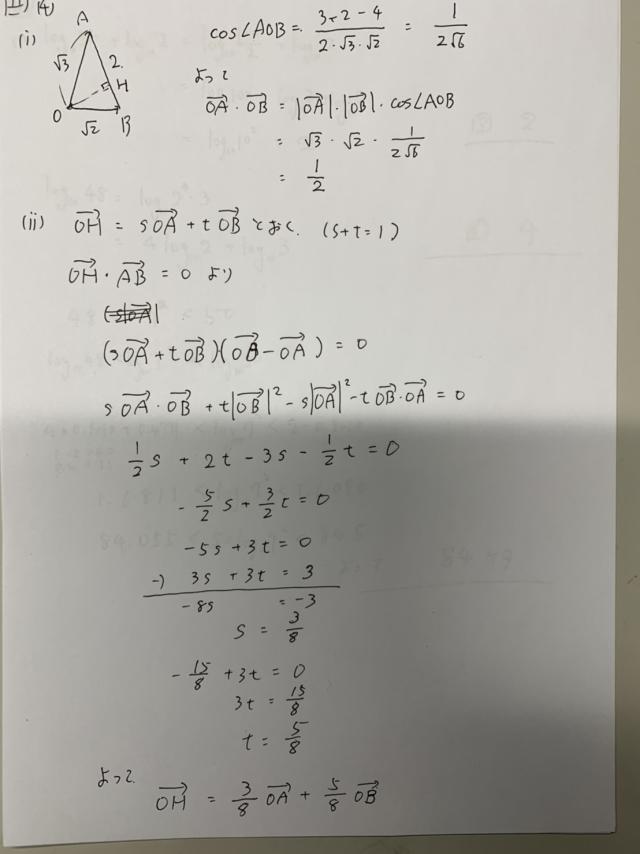 三 (4)
(i)
A
√3
2.
H
O
√2
B
cos∠AOB = (3+2-4)/(2·√3·√2) = 1/(2√6)
よって
→OA · →OB = |→OA|·|→OB|·cos∠AOB
= √3 · √2 · 1/(2√6)
= 1/2
(ii) →OH = s→OA + t→OB とおく. (s+t=1)
→OH · →AB = 0 より
(s→OA + t→OB)(→OB - →OA) = 0
s→OA · →OB + t|→OB|² - s|→OA|² - t→OB·→OA = 0
1/2 s + 2t - 3s - 1/2 t = 0
- 5/2 s + 3/2 t = 0
-5s + 3t = 0
-) 3s + 3t = 3
-8s = -3
s = 3/8
- 15/8 + 3t = 0
3t = 15/8
t = 5/8
よって
→OH = 3/8 →OA + 5/8 →OB